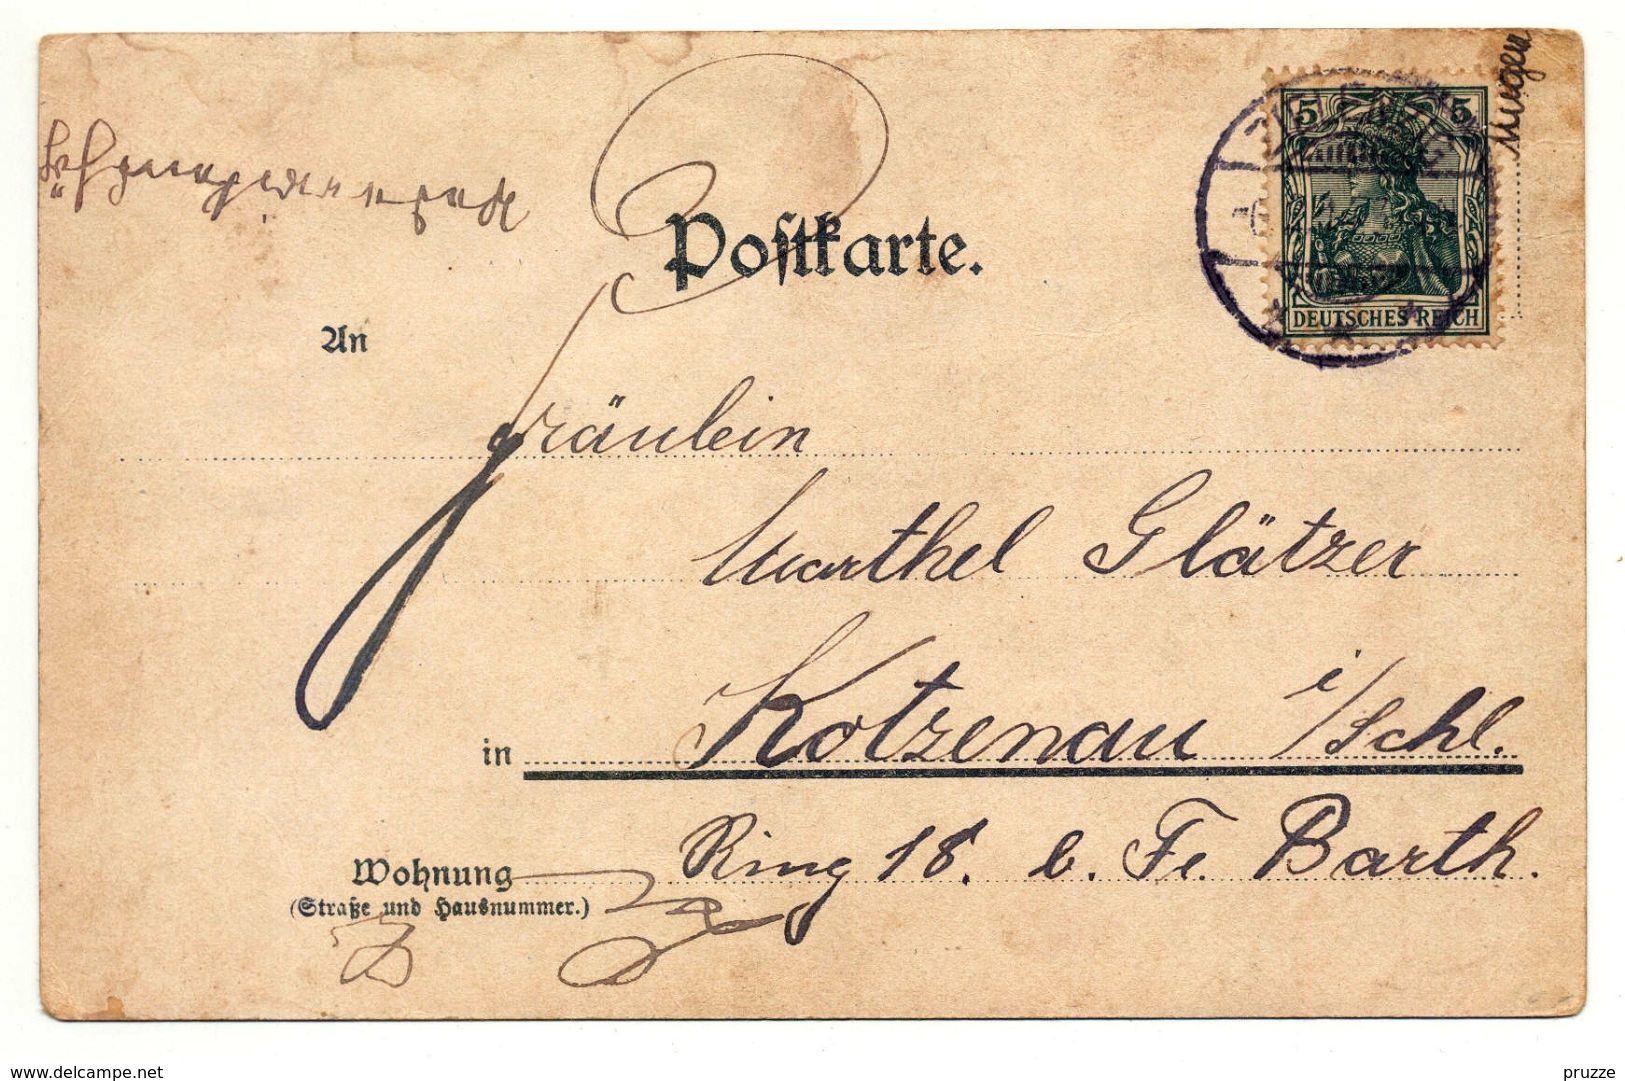 Postkarte.
5 5
DEUTSCHES REICH
An
Fräulein
Marthel Glätzer
in Kotzenau i/Schl.
Wohnung Ring 18. b. Fr. Barth.
(Straße und Hausnummer.)
www.delcampe.net
pruzze